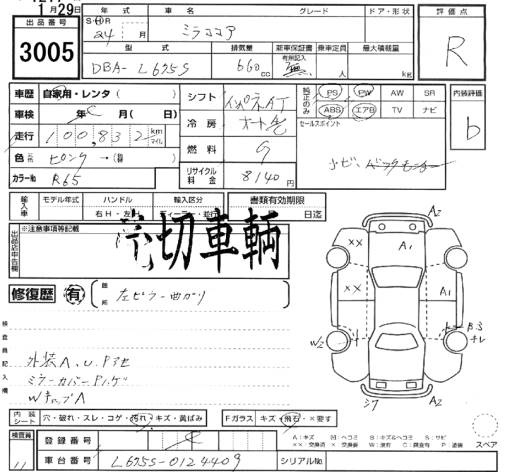 1月29日
出品番号
3005
年式 車名 グレード ドア・形状 評価点
S・H R
24 月 ミラココア R
型式 排気量 新車保証書 乗車定員 最大積載量
有・無記入
DBA- L675S 660 cc 無 人 kg
車歴 自家用・レンタ( ) シフト インパネAT 純正のみ PS PW AW SR 内装評価
ABS エアB TV ナビ
車検 年 月( 日) 冷房 オート
セールスポイント
b
走行 100,832 km マイル
燃料 G
ナビ、バックモニター
色 元色 ピンク →(替 )
リサイクル料金 8140 円
カラーNo R65
輸入車 モデル年式 ハンドル 輸入区分 書類有効期限
右H・左 ディーラー・並行 日迄
出品店申告欄 ※注意事項等記載
売切車輌
修復歴 有 箇所 左ピラー曲がり
検査員記入欄
外装A、U、Pアセ
ミラーカバーPハゲ
WキャップA
A2
XX A1
XX A1
W2 B3
A2
内装シート 穴・破れ・スレ・コゲ・汚れ・キズ・黄ばみ Fガラス キズ・飛石・×要す
検査員 登録番号
A:キズ H:ヘコミ B:キズ&ヘコミ S:サビ
スペア
11 車台番号 L675S-0124409 シリアルNo.